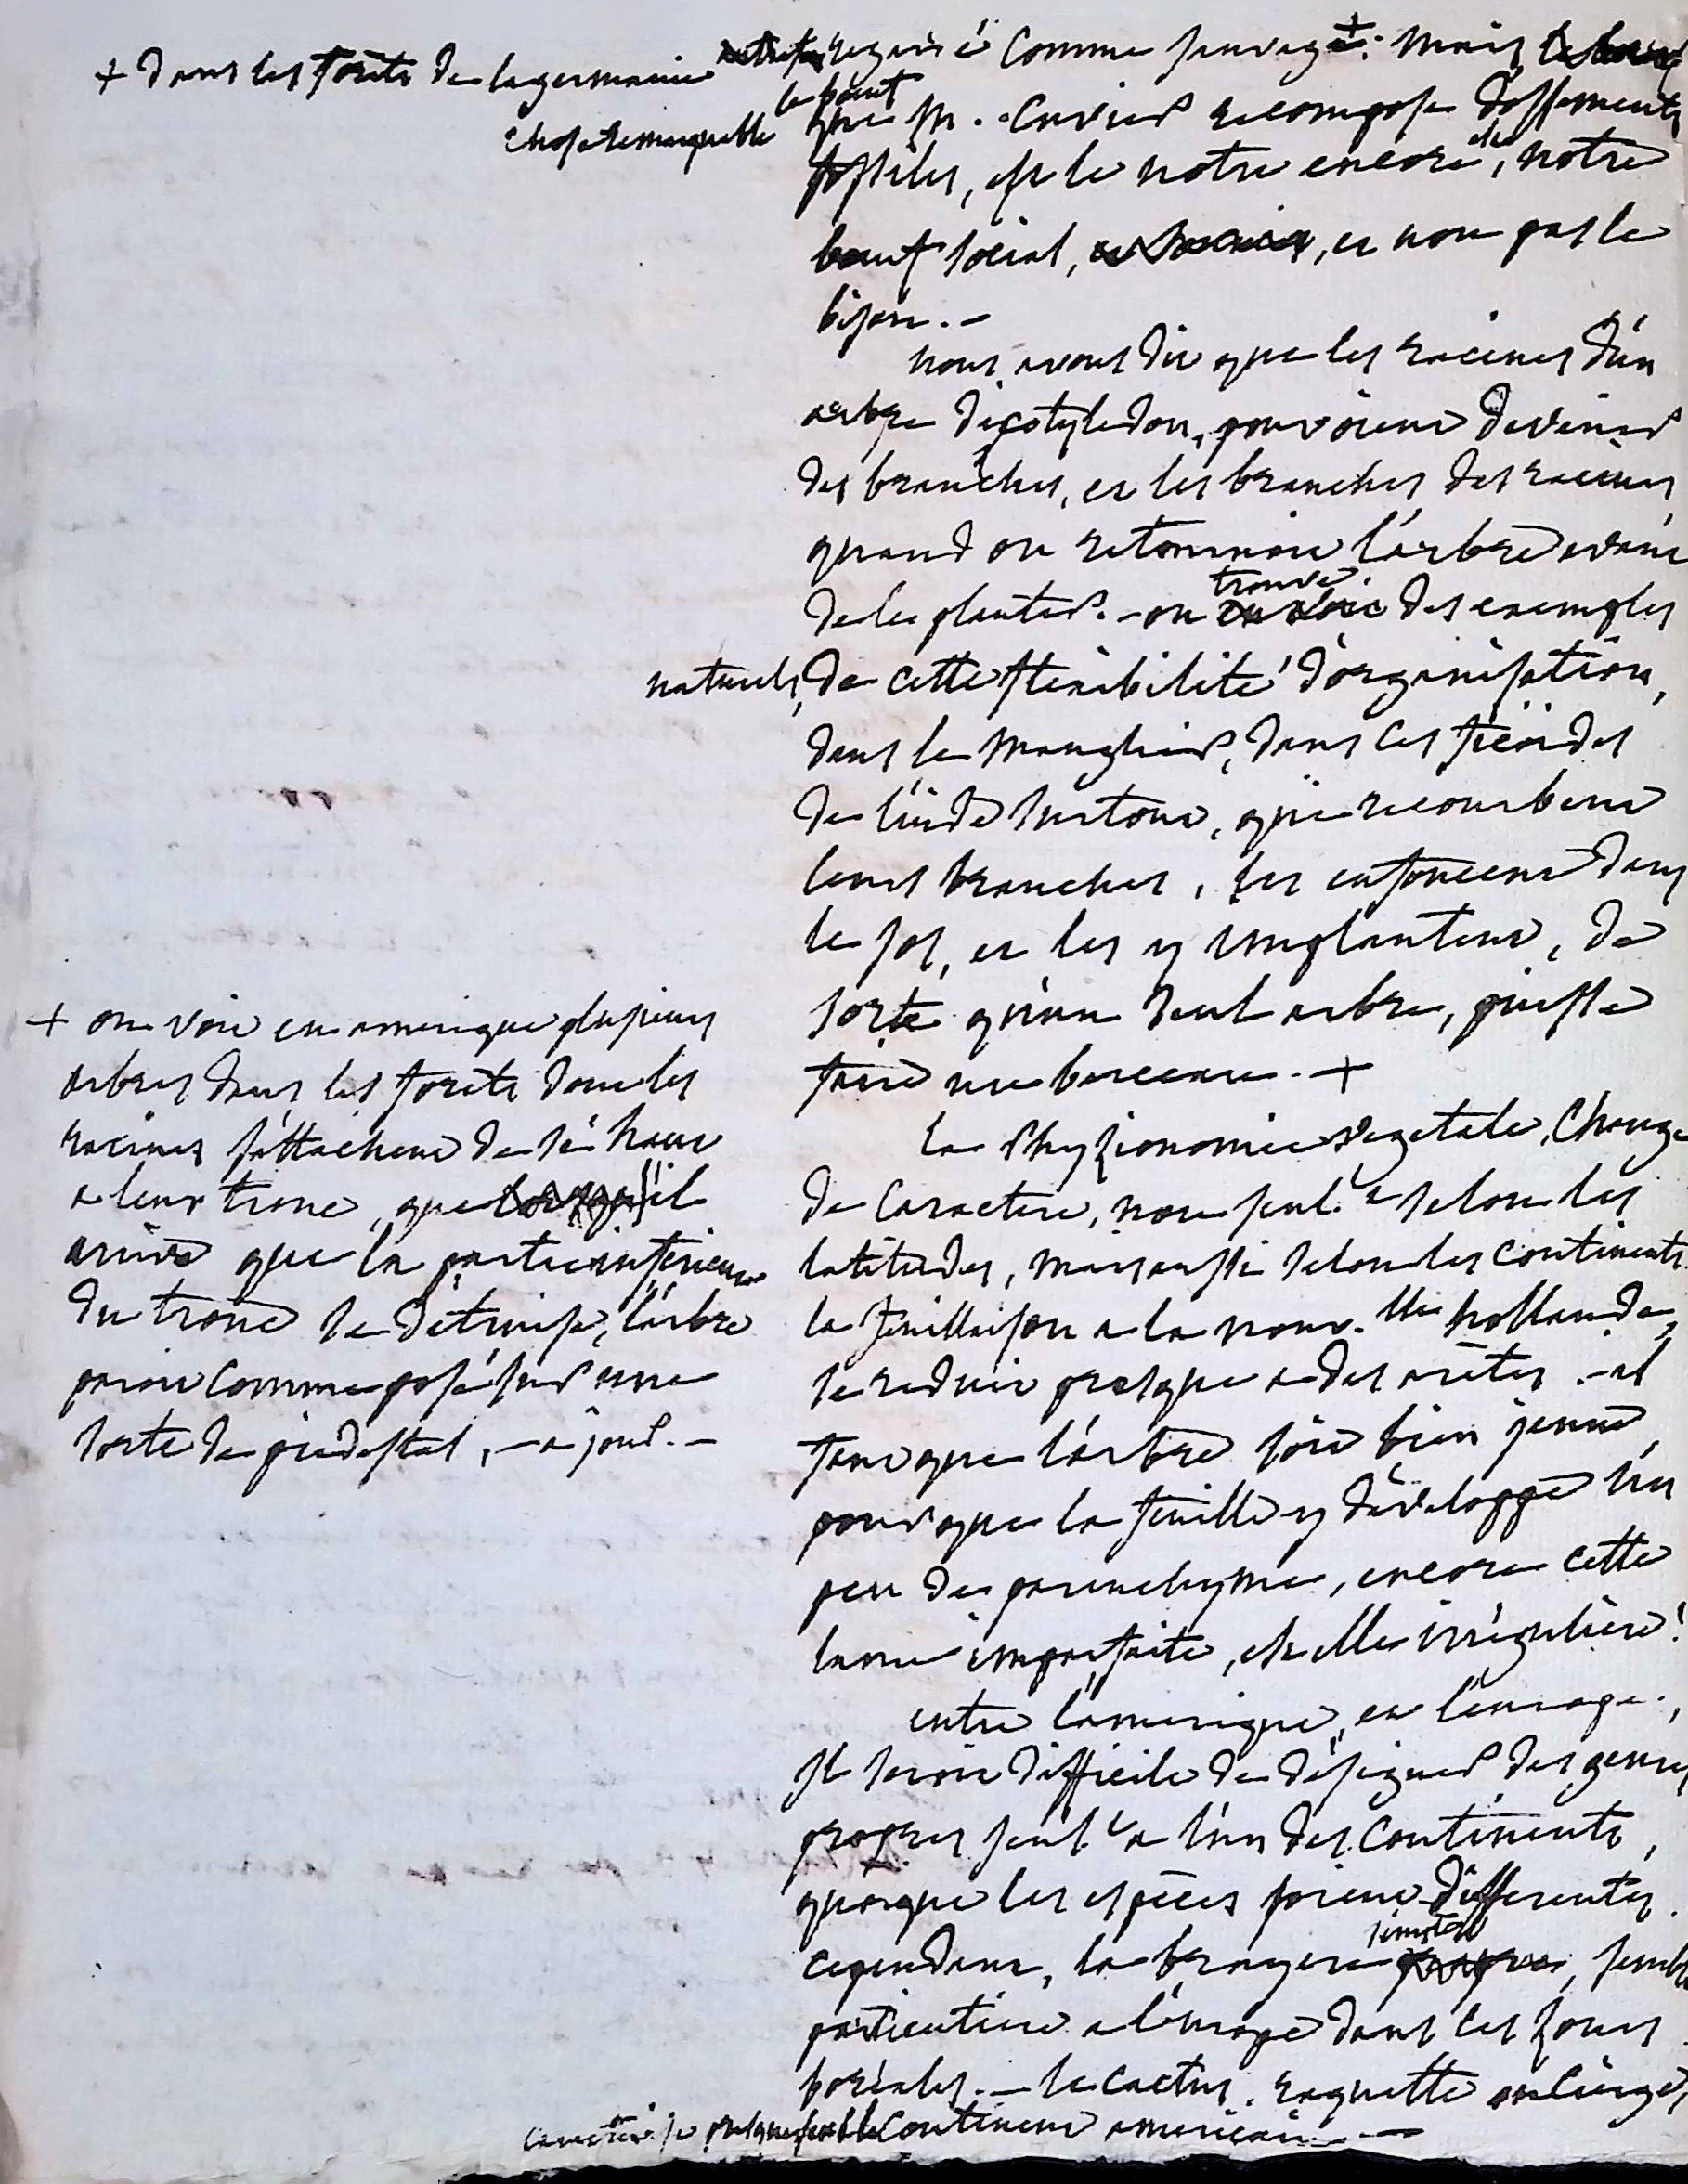 + dans les forêts de la germanie
chose remarquable
regardé comme sauvage +. mais
le boeuf
que m. Cuvier recompose d'ossements
fossiles, est le notre encore, notre
boeuf social, et non pas le
bison. -
nous avons dit que les racines d'un
arbre dicotyledon, pouvoient devenir
des branches, et les branches des racines
quand on retournoit l'arbre avant
de les planter. - on trouve des exemples
naturels, de cette flexibilité d'organisation,
dans le manglier, dans les ficoïdes
de l'inde surtout, qui recourbent
leurs branches, les enfoncent dans
le sol, et les y implantent, de
sorte qu'un seul arbre, puisse
faire un berceau. +
+ on voit en amerique plusieurs
arbres dans les forêts dont les
racines s'attachent de si haut
a leur tronc, que s'il
arrive que la partie inferieure
du tronc se détruise, l'arbre
paroit comme posé sur une
sorte de piedestal, - a jour. -
la Physionomie vegetale, change
de caractere, non seul.t selon les
latitudes, mais aussi selon les continents.
la feuillaison a la nouv.lle hollande,
se reduit presque a des arètes. - il
faut que l'arbre soit bien jeune,
pour que la feuille y développe un
peu de parenchyme, encore cette
lame imparfaite, est elle irrégulière!
entre l'amerique, et l'europe,
il seroit difficile de désigner des genres
propres seul.t a l'un des continents,
quoique les espèces soient differentes.
cependant, la bruyere semble
particuliere a l'europe dans les zones
boréales. - le cactus, raquette ou cierge,
caractérise presque seul le continent americain. -